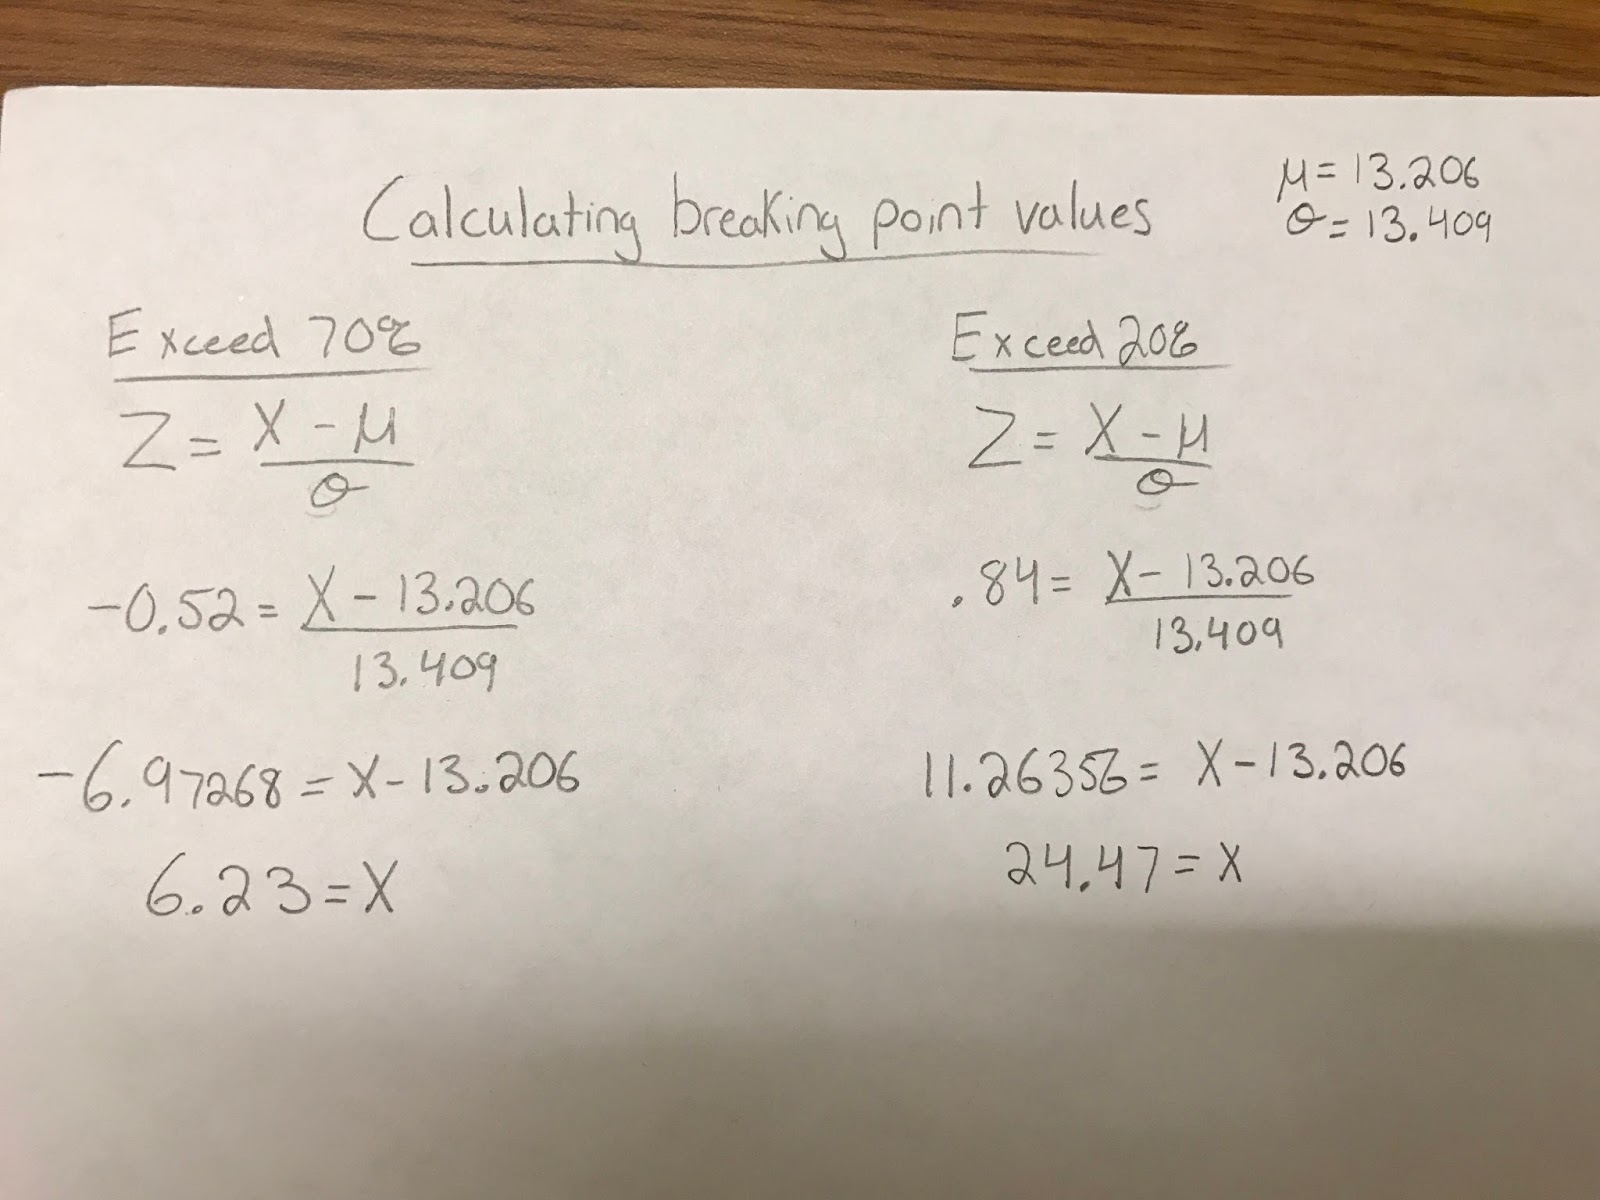 Calculating breaking point values
μ = 13.206
σ = 13.409
Exceed 70%
Z = X - μ
σ
-0.52 = X - 13.206
13.409
-6.97268 = X - 13.206
6.23 = X
Exceed 20%
Z = X - μ
σ
.84 = X - 13.206
13.409
11.26356 = X - 13.206
24.47 = X